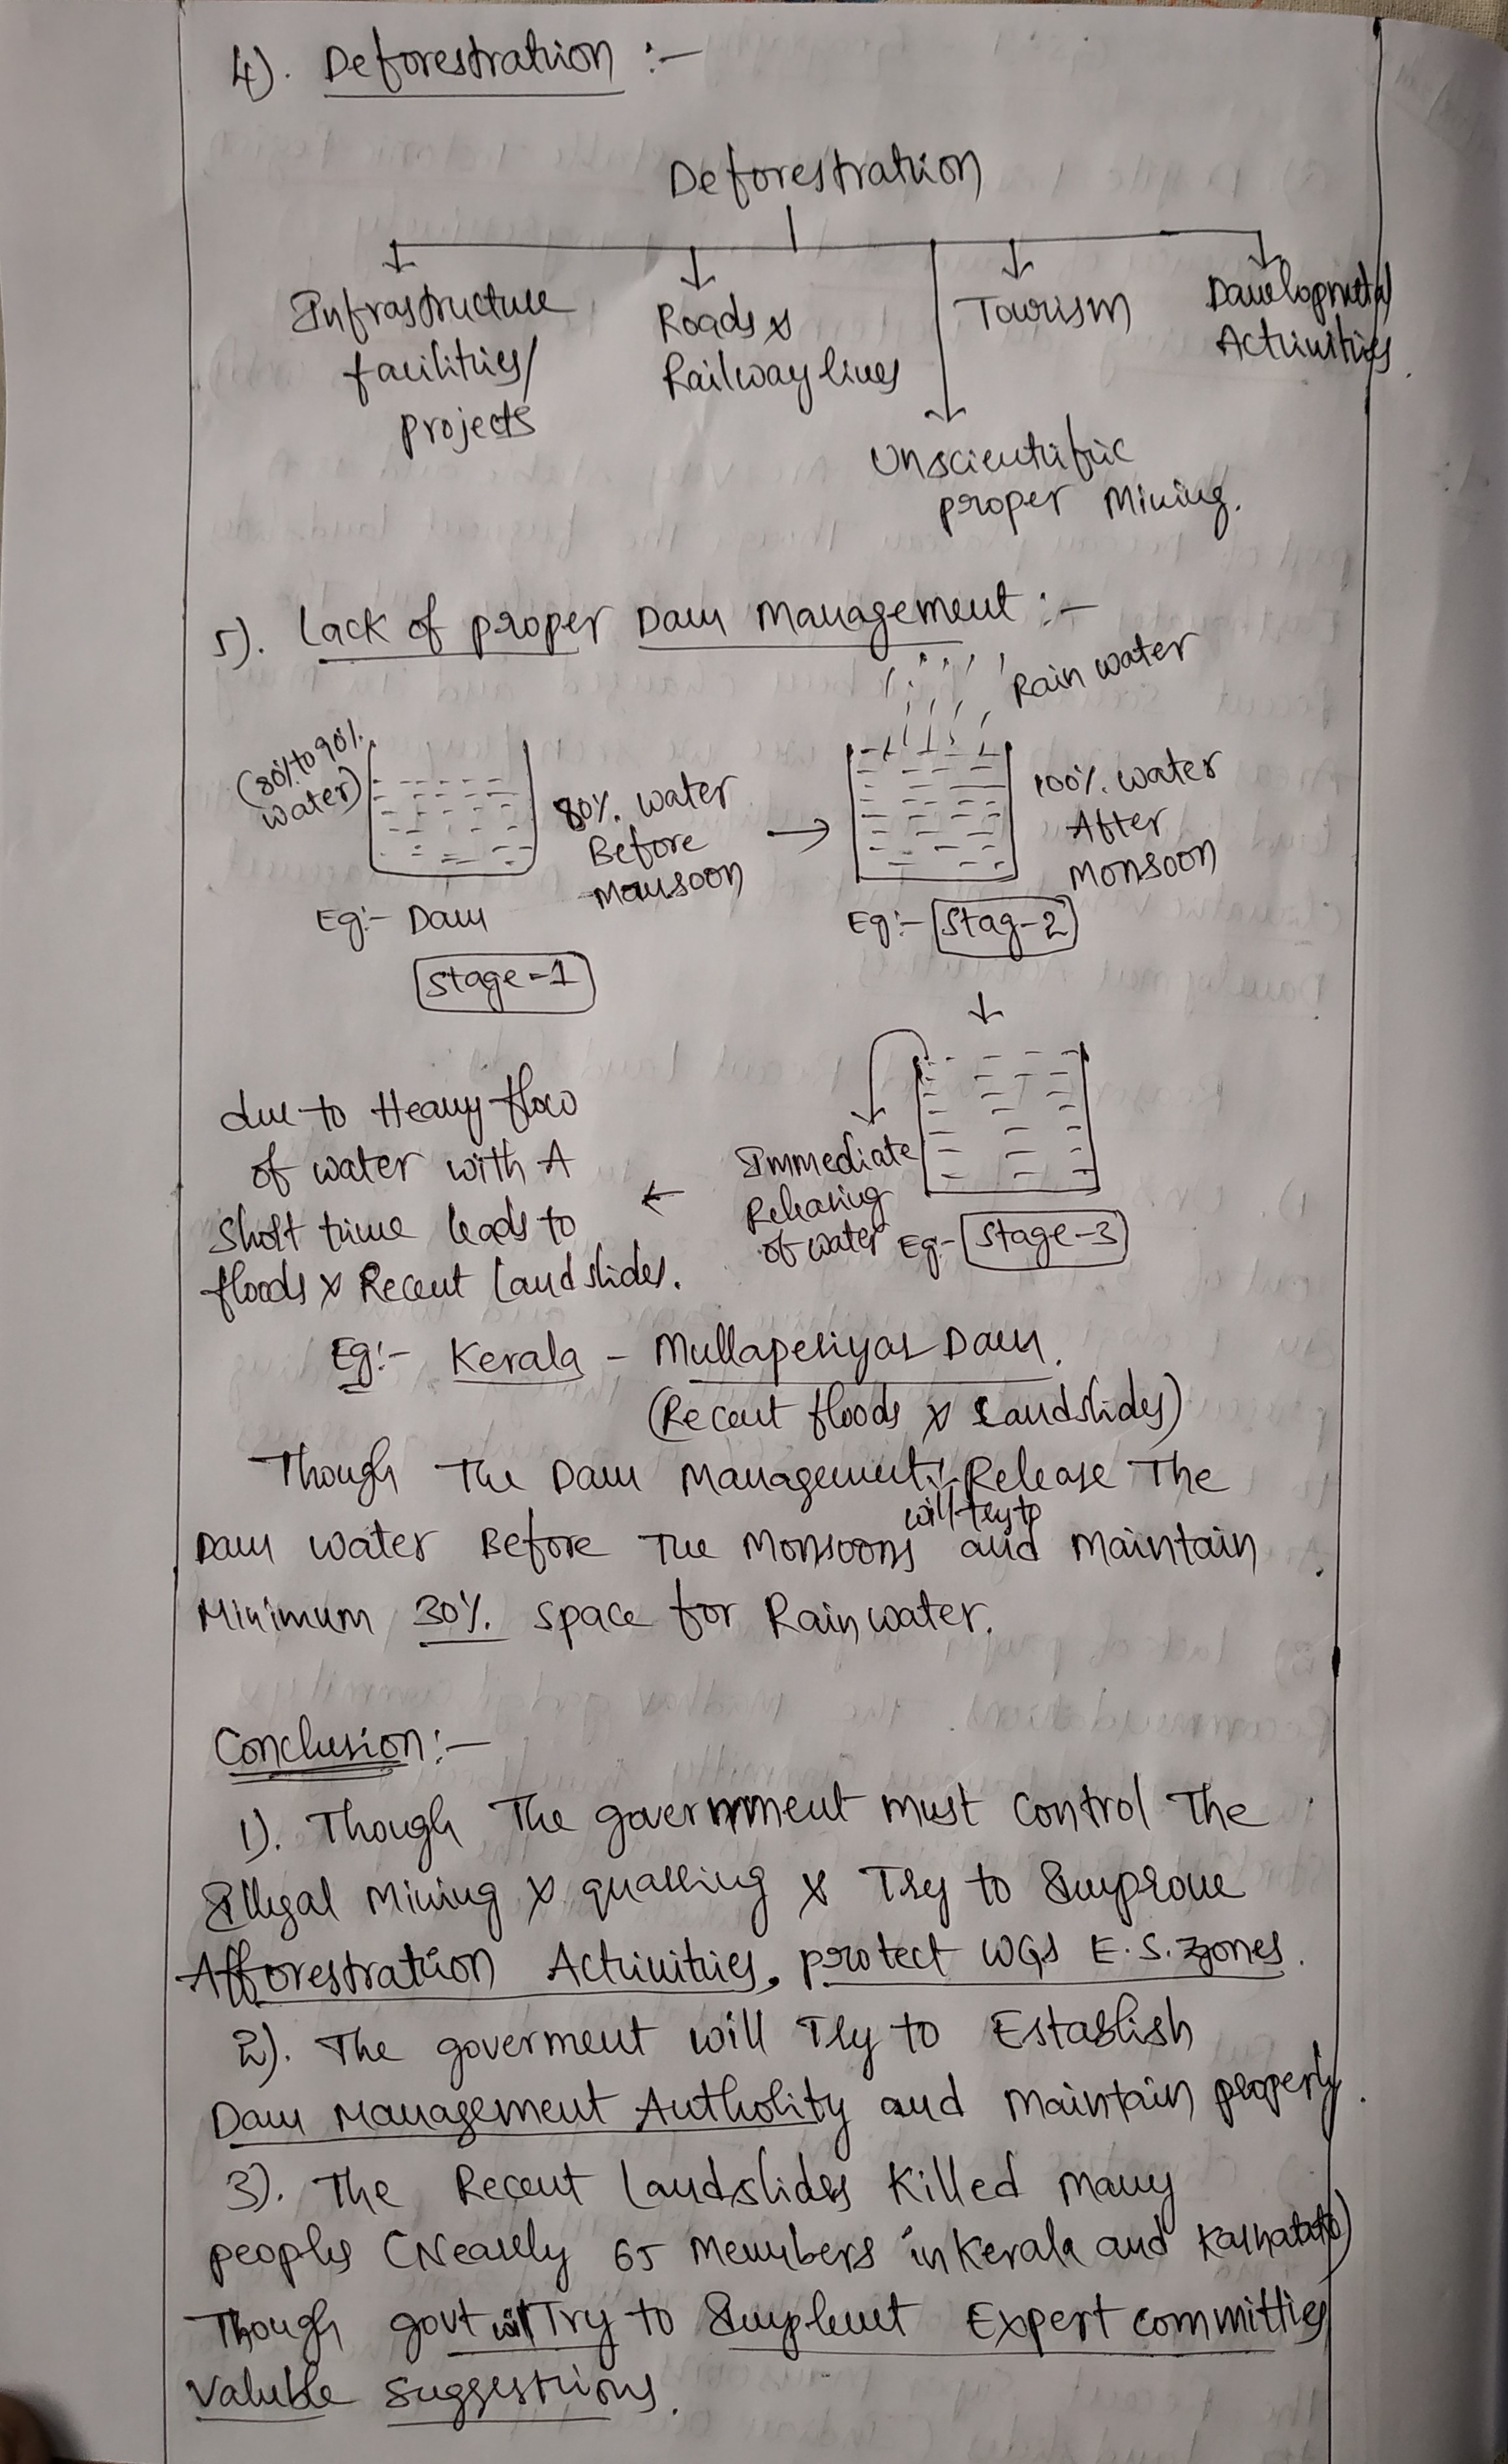 4). Deforestration :-
Deforestration
Infrastructure
facilities/
projects
Roads &
Railway lines
Unscientific
proper Mining.
Tourism
Developmetal
Activities.
5). Lack of proper Dam Management :-
Rain water
(80% to 90%
water)
80% water
Before
Monsoon
Eg:- Dam
Stage-1
100% water
After
Monsoon
Eg:- Stag-2
Immediate
Releasing
of water
Eg:- Stage-3
due to Heavy flow
of water with A
Short time leads to
floods & Recent Landslides.
Eg:- Kerala - Mullaperiyar Dam.
(Recent floods & Landslides)
Though The Dam Management Release The
will try to
Dam water Before The Monsoons and Maintain
Minimum 30% space for Rain water.
Conclusion:-
1). Though The government must control The
Illegal Mining & quarring & Try to Improve
Afforestration Activities, protect WGs E.S.Zones.
2). The goverment will Try to Establish
Dam Management Authority and Maintain properly.
3). The Recent Landslides Killed many
peoples (Nearly 65 Members in Kerala and
Though govt will Try to Implemt Expert committies
Valuble suggestions.